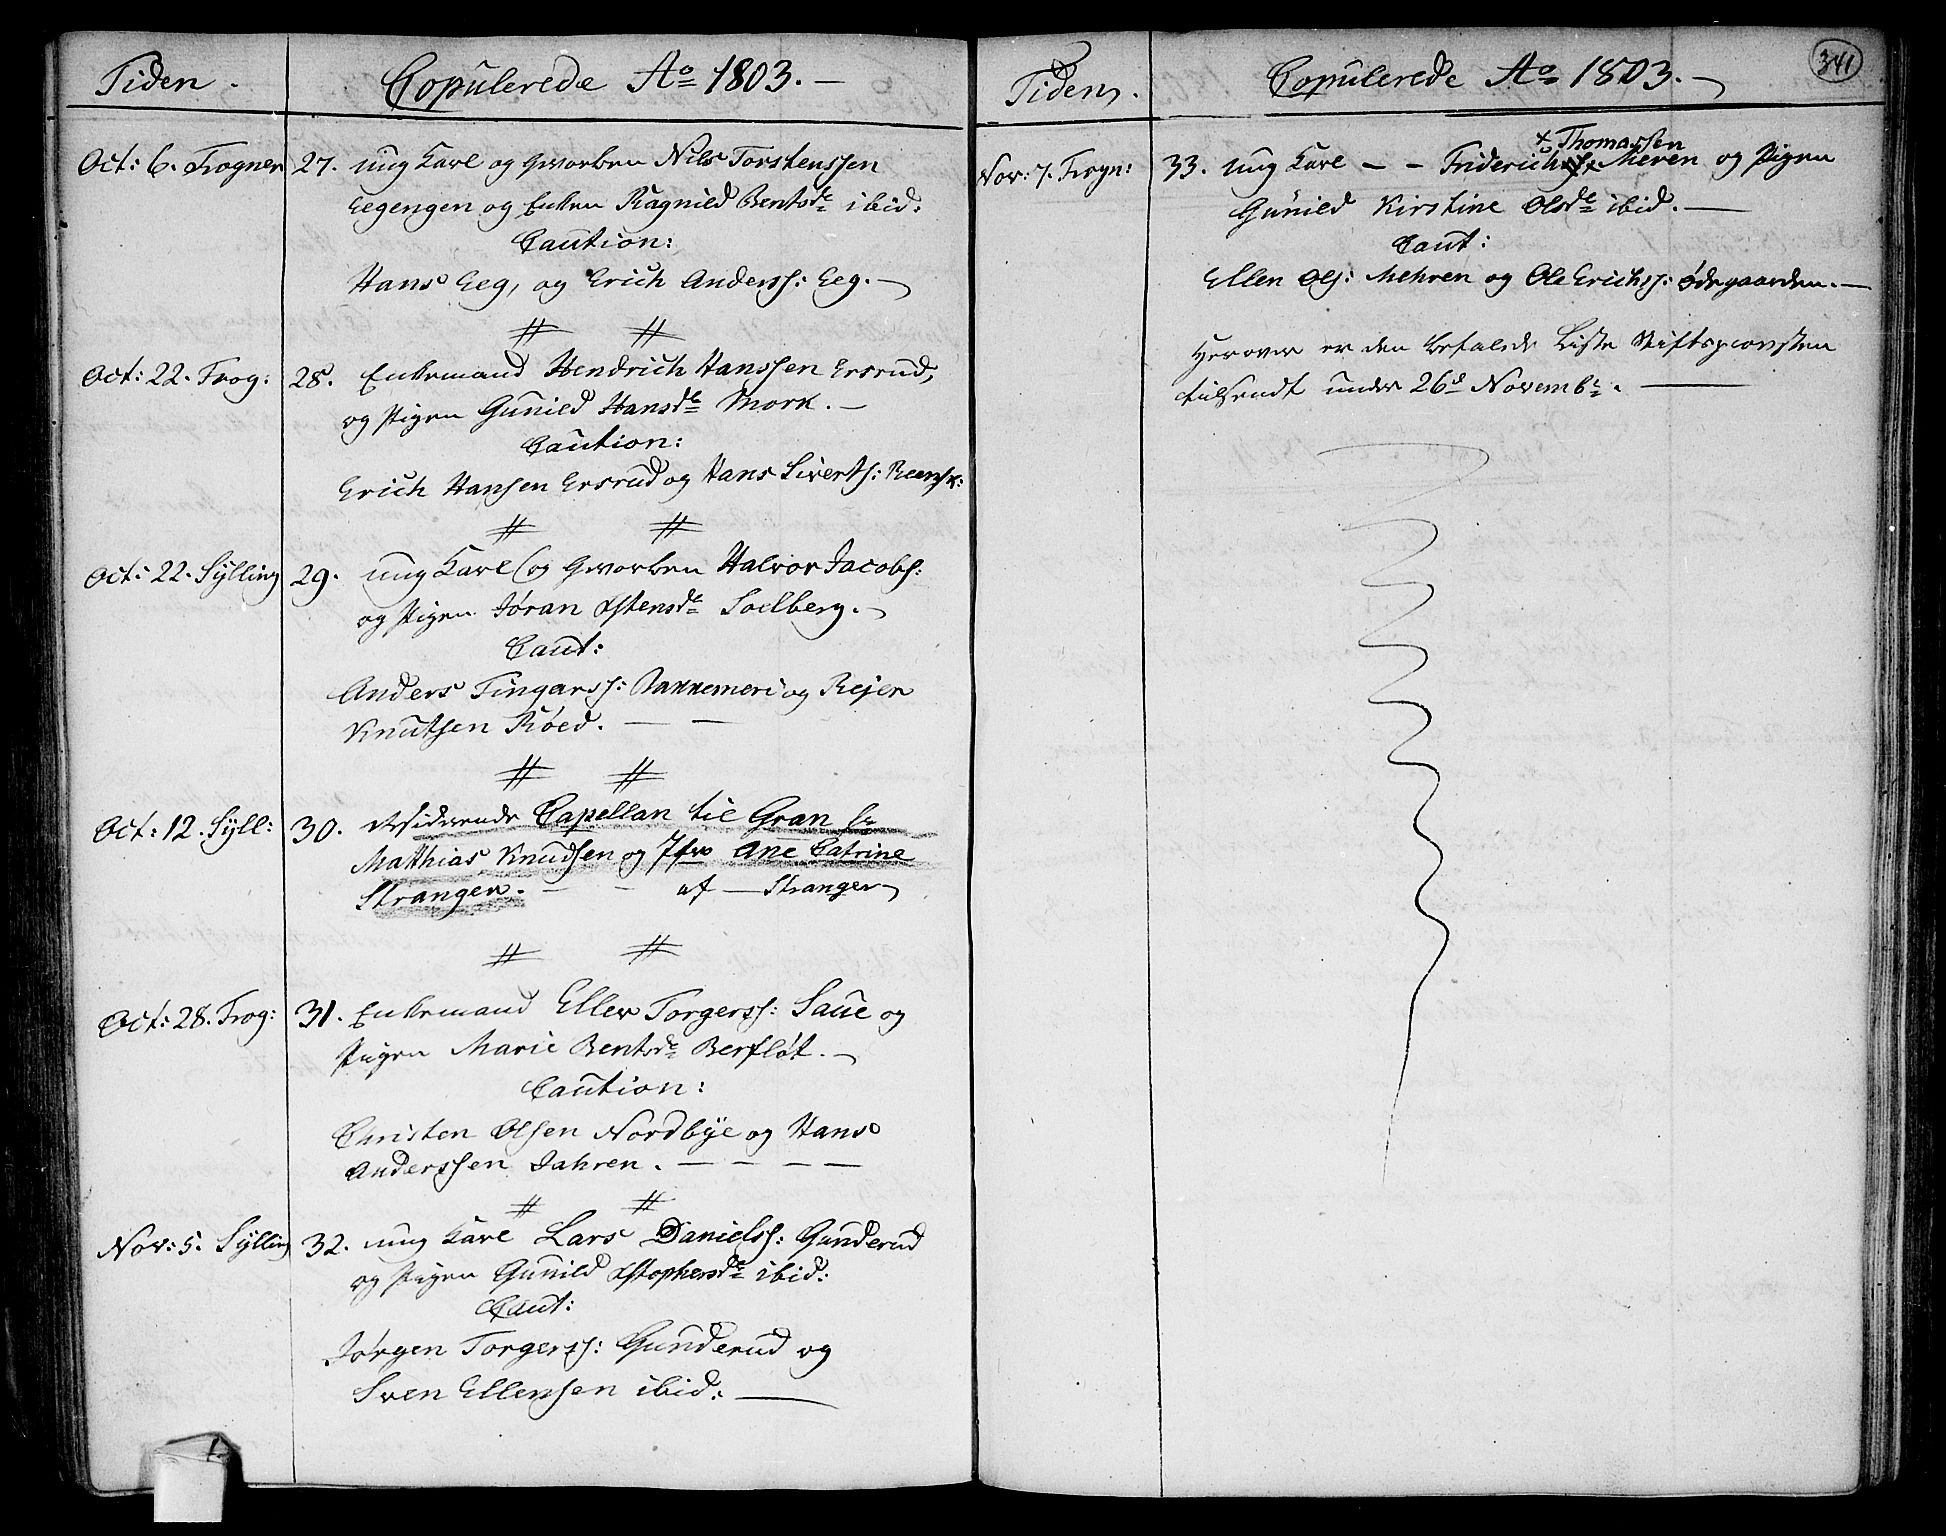 Tiden.
Copulerede Ao 1803. —
Oct: 6. Frogner 27. ung Karl og Gvorben Nils Torstenssen
Eegengen og Enken Ragnild Bentsdr ibid:
Caution:
Hans Eeg, og Erich Anderss: Eeg. —
Oct: 22. Frog: 28. Enkemand Hendrich Hanssen Ersrud,
og Pigen Gunild Hansdr Mork. —
Caution:
Erich Hansen Ersrud og Hans Siverts:
Oct: 22. Sylling 29. ung Karl og Gvorben Halvor Jacobs:
og Pigen Jøran Xstensdr Solberg. —
Caut:
Anders Fingarss: og Rejer
Knutsen Röed. — —
Oct: 12. Syll: 30. residerende Capellan til Gran Hr
Matthias Knudsen og Jfro Ane Catrine
Stranger. — — af — Stranger
Oct: 28. Frog: 31. Enkemand Ellev Torgerss: Saue og
Pigen Marie Bentsdr Berfløt. —
Caution:
Christen Olsen Nordbye og Hans
Anderssen Jahren. — — — —
Nov: 5. Sylling 32. ung Karl Lars Danielss: Gunderud
og Pigen Gunild Xstophersdr ibid:
Caut:
Jørgen Torgerss: Gunderud og
Sven Ellensen ibid: —
341
Tiden.
Copulerede Ao 1803. —
x Thomassen
Nov: 7. Frogn: 33. ung Karl — — Friderich Meren og Pigen
Gunild Kirstine Olsdr ibid. —
Caut:
Ellen Ols: Mehren og Ole Erichss: Ødegaarden. —
Herover er den befalede Liste Stiftsprovsten
tilsendt under 26d Novembr. —